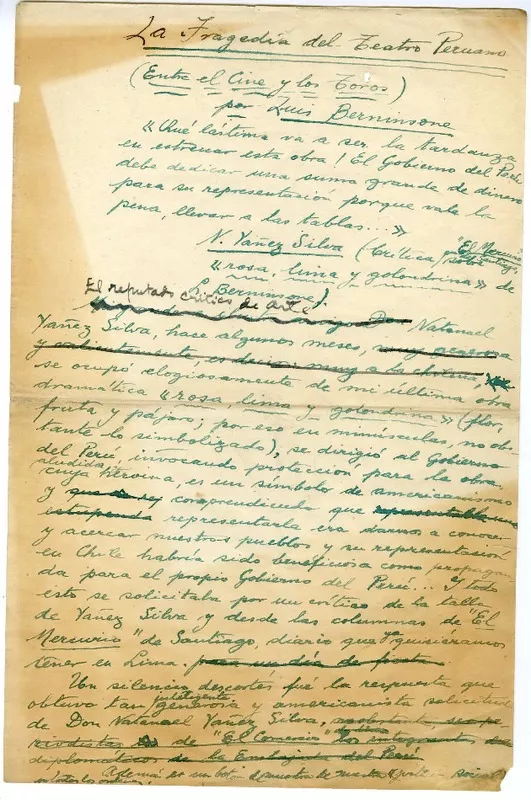 La Tragedia del Teatro Peruano
(Entre el Cine y los Toros)
por Luis Berninsone
"Qué lástima va a ser la tardanza
en estrenar esta obra! El Gobierno del Perú
debe dedicar una suma grande de dinero
para su representación porque vale la
pena, llevar a las tablas..."
N. Yáñez Silva (Crítica sobre "El Mercurio"
"rosa, lima y golondrina" de
L. Berninsone).
El reputado crítico de arte
Don Natanael
Yáñez Silva, hace algunos meses, muy generosa
y valientemente, es decir: muy a la chilena,
se ocupó elogiosamente de mi última obra
dramática "rosa, lima y golondrina" (flor,
fruta y pájaro; por eso en minúsculas, no obs-
tante lo simbolizado), se dirigió al Gobierno
del Perú, invocando protección, para la obra
aludida,
cuya heroina, es un símbolo de americanismo
y comprendiendo que
estupenda representarla era darnos a conocer
y acercar nuestros pueblos y su representación
en Chile habría sido beneficiosa como propagan-
da para el propio Gobierno del Perú... Y todo
esto se solicitaba por un crítico de la talla
de Yáñez Silva y desde las columnas de "El
Mercurio" de Santiago, diario que ya quisiéramos
tener en Lima. para un día de fiesta.
Un silencio descortés fué la respuesta que
obtuvo tan inteligente generosa y americanista solicitud
de Don Natanael Yáñez Silva,
de "El Comercio" los integrantes
diplomáticos de la Embajada del Perú
Además es un botón de muestra de nuestra